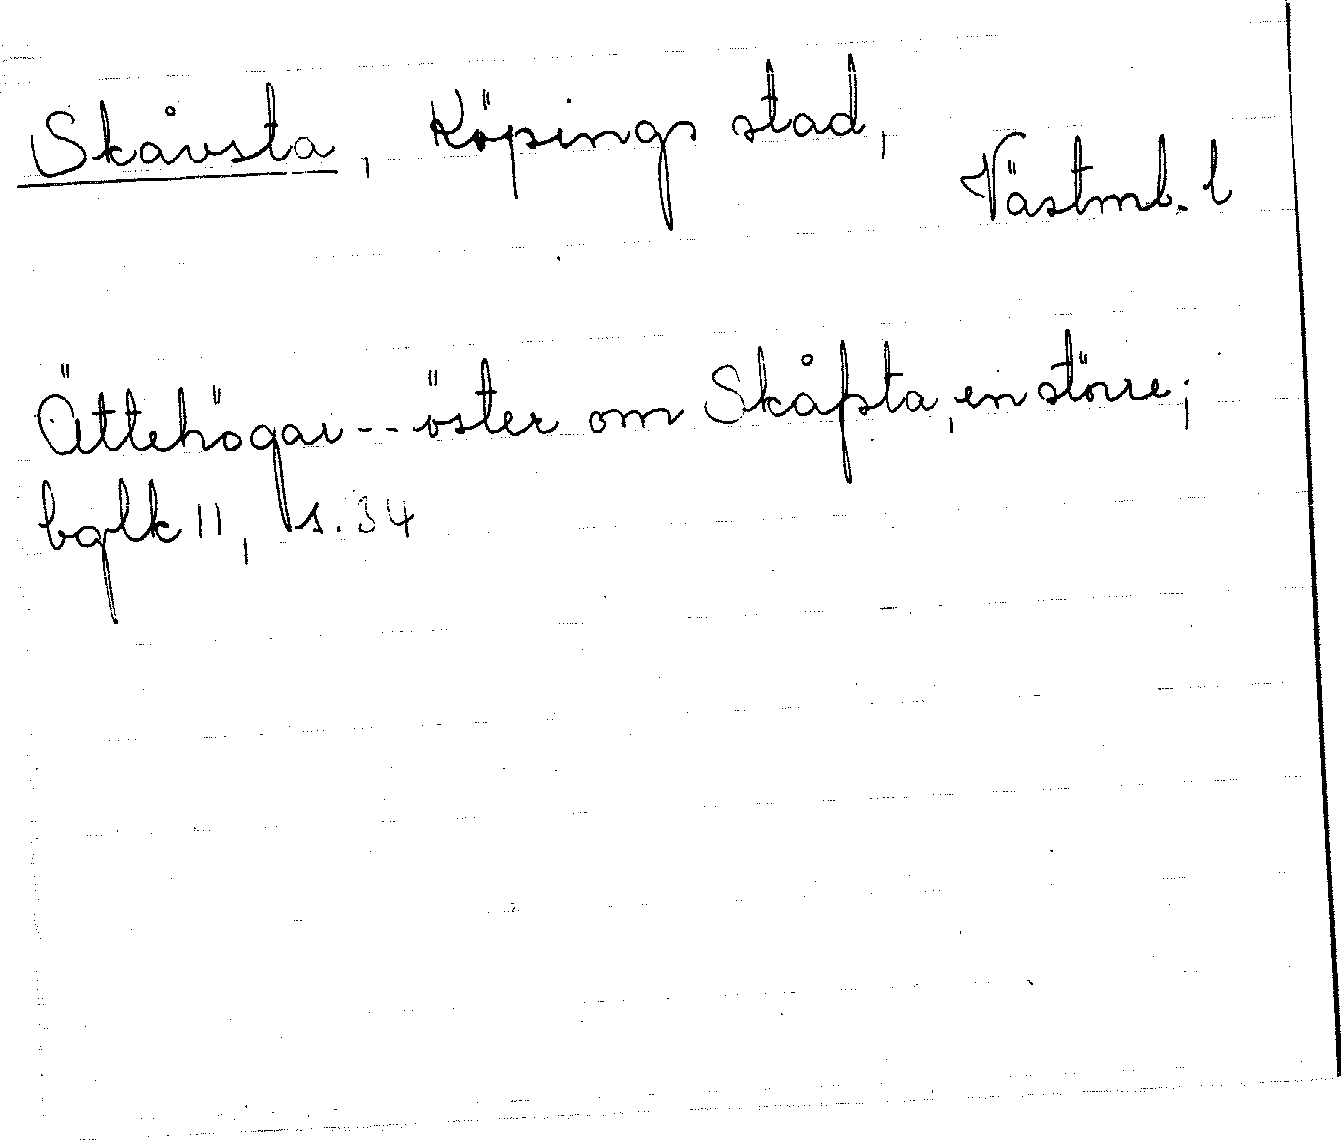 Skåvsta, Köpings stad,
Västmb. l
Ättehögar -- öster om Skåpsta, en större;
bglk 11, s. 34